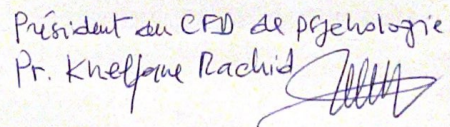 Président du CFD de psychologie
Pr. Khelfane Rachid